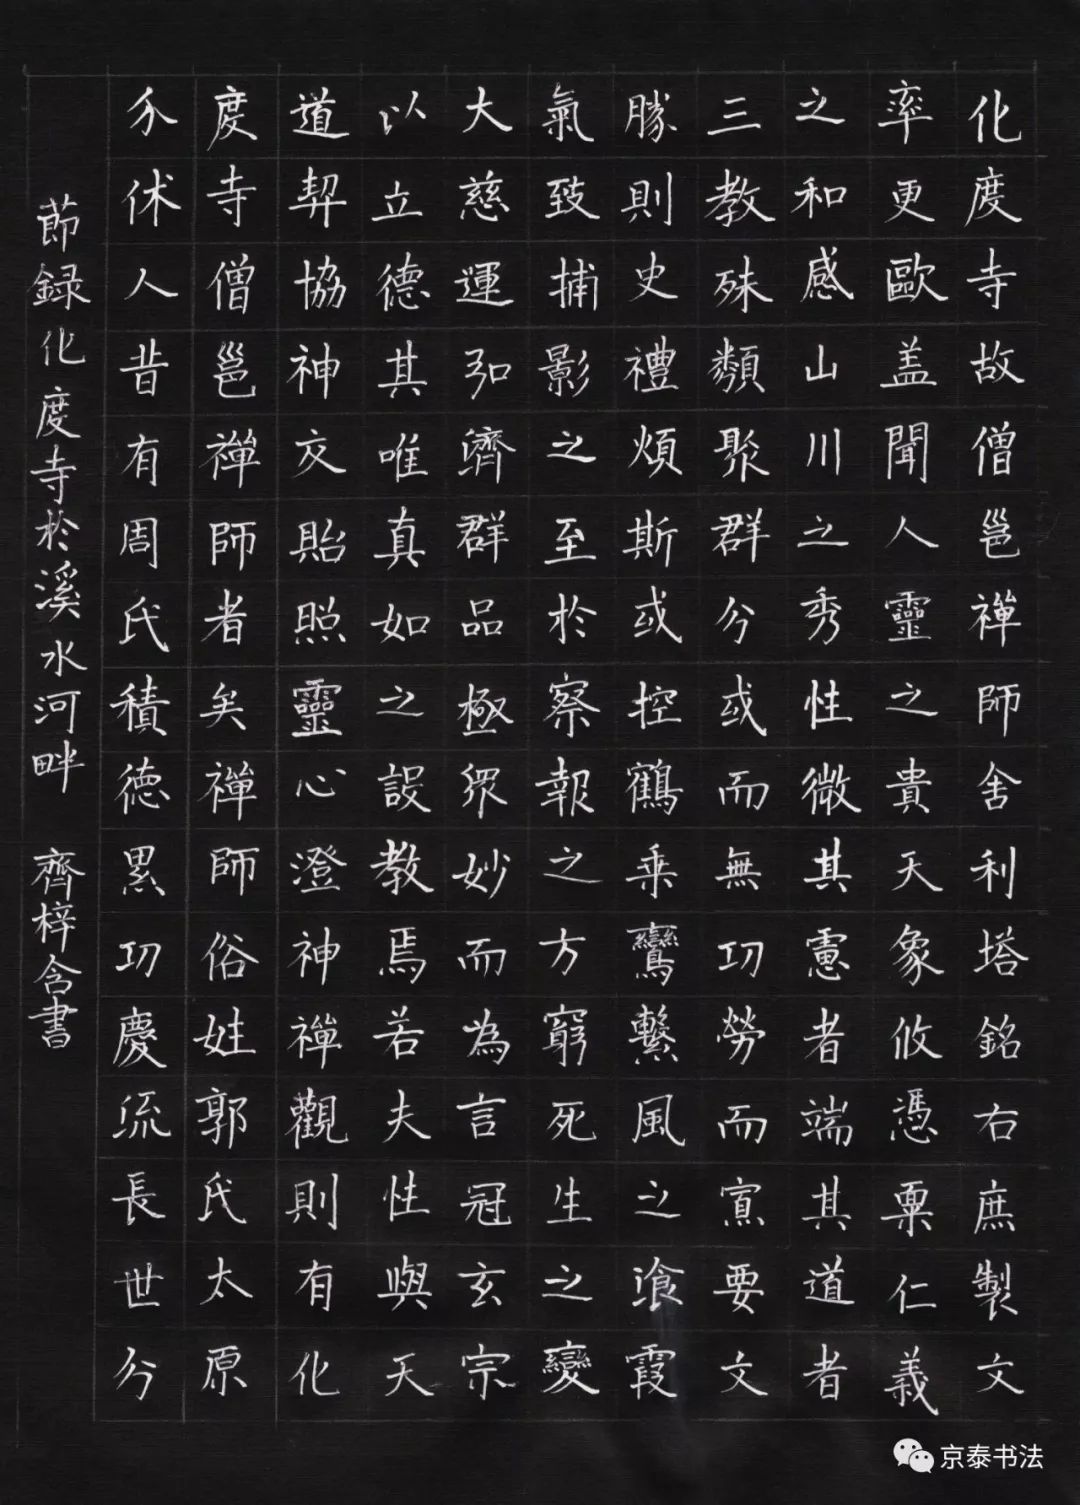 化度寺故僧邕禪師舍利塔銘右庶製文
率更歐盖聞人靈之貴天象攸憑稟仁義
之和感山川之秀性微其憲者端其道者
三教殊類聚群分或而無功勞而寡要文
勝則史禮煩斯或控鶴乘鸞繫風之飡霞
氣致捕影之至於察報之方窮死生之變
大慈運弘濟群品極眾妙而為言冠玄宗
以立德其唯真如之設教焉若夫性與天
道契協神交貽照靈心澄神禪觀則有化
度寺僧邕禪師者矣禪師俗姓郭氏太原
介休人昔有周氏積德累功慶流長世分
節録化度寺於溪水河畔 齊梓含書
京泰书法